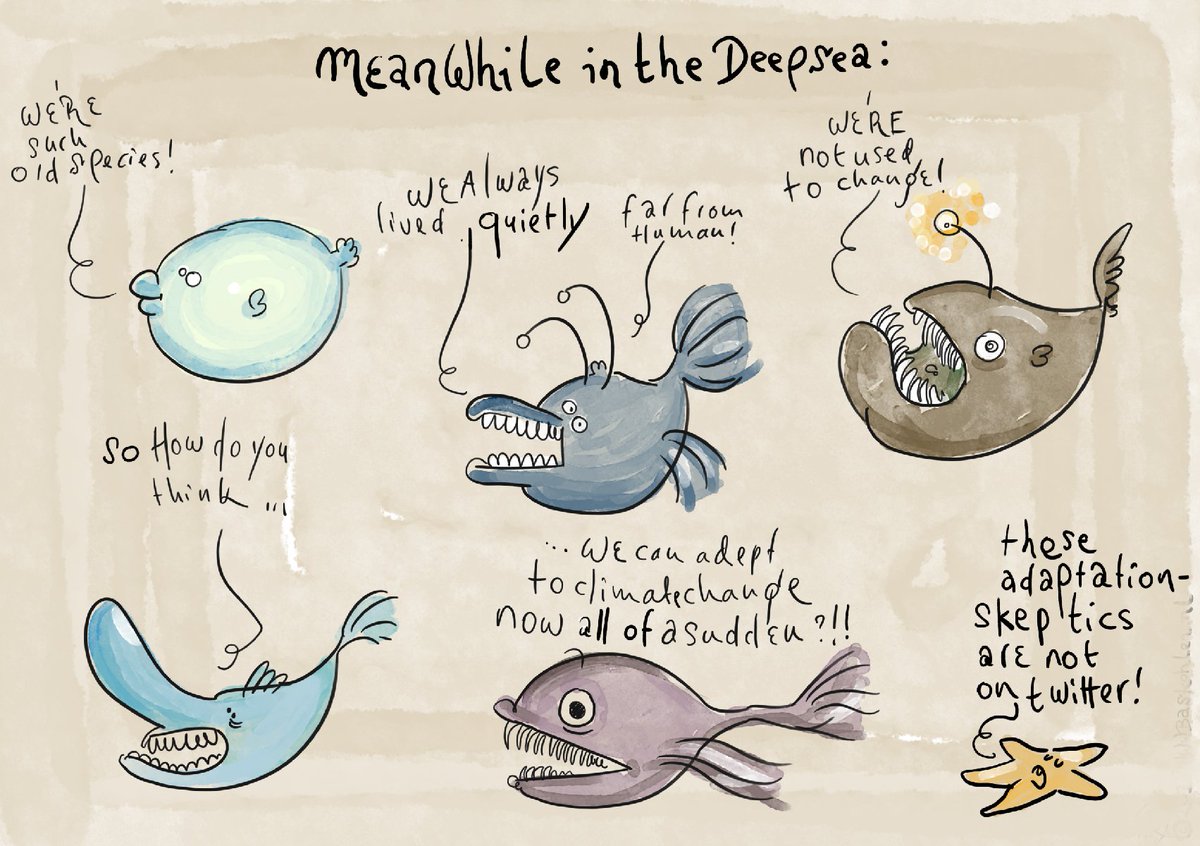 MEANWHILE in the Deepsea:
WE'RE
such
old species!
WE Always
lived quietly
far from
Human!
WE'RE
not used
to change!
So How do you
think ...
... WE can adept
to climatechange
now all of a sudden?!!
these
adaptation-
skeptics
are not
on twitter!